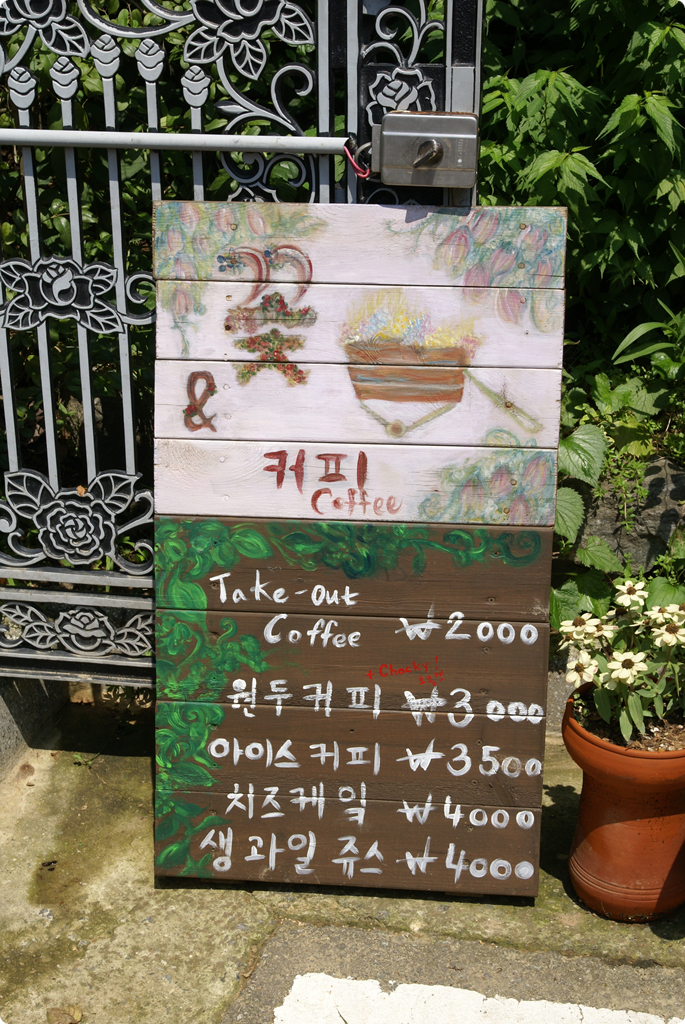 꽃
&
커피
Coffee
Take-out
Coffee ₩2000
원두커피 ₩3000
아이스커피 ₩3500
치즈케익 ₩4000
생과일 쥬스 ₩4000